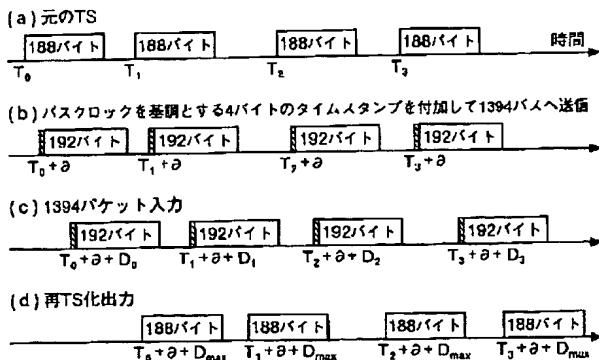 (a)元のTS
188バイト 188バイト 188バイト 188バイト 時間
T0 T1 T2 T3
(b)バスクロックを基調とする4バイトのタイムスタンプを付加して1394バスへ送信
192バイト 192バイト 192バイト 192バイト
T0+∂ T1+∂ T2+∂ T3+∂
(c)1394パケット入力
192バイト 192バイト 192バイト 192バイト
T0+∂+D0 T1+∂+D1 T2+∂+D2 T3+∂+D3
(d)再TS化出力
188バイト 188バイト 188バイト 188バイト
T0+∂+Dmax T1+∂+Dmax T2+∂+Dmax T3+∂+Dmax